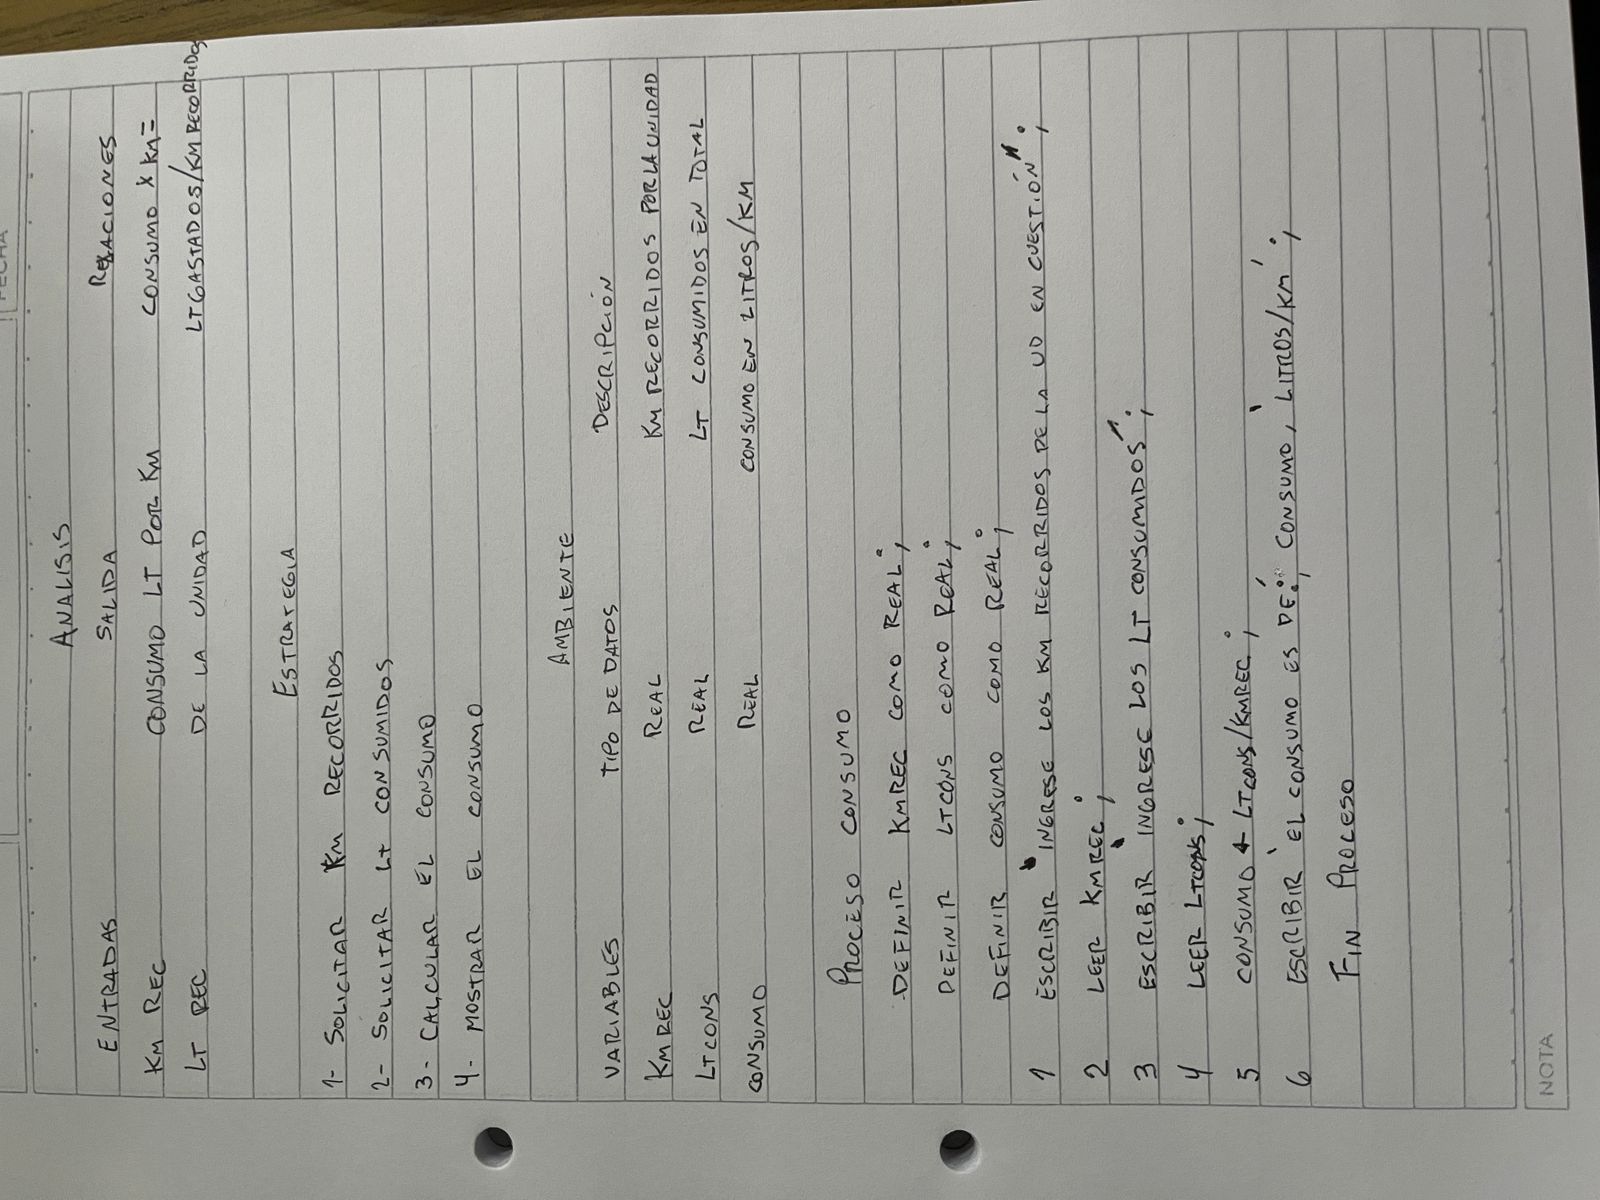 FECHA
ANALISIS
ENTRADAS SALIDA RELACIONES
KM REC CONSUMO LT POR KM CONSUMO X KM=
LT REC DE LA UNIDAD LTGASTADOS/KM RECORRIDOS
ESTRATEGIA
1- SOLICITAR KM RECORRIDOS
2- SOLICITAR LT CONSUMIDOS
3- CALCULAR EL CONSUMO
4- MOSTRAR EL CONSUMO
AMBIENTE
VARIABLES TIPO DE DATOS DESCRIPCIÓN
KMREC REAL KM RECORRIDOS POR LA UNIDAD
LTCONS REAL LT CONSUMIDOS EN TOTAL
CONSUMO REAL CONSUMO EN LITROS/KM
PROCESO CONSUMO
DEFINIR KMREC COMO REAL;
DEFINIR LTCONS COMO REAL;
DEFINIR CONSUMO COMO REAL;
1 ESCRIBIR "INGRESE LOS KM RECORRIDOS DE LA UD EN CUESTIÓN";
2 LEER KMREC;
3 ESCRIBIR "INGRESE LOS LT CONSUMIDOS";
4 LEER LTCONS;
5 CONSUMO ← LTCONS/KMREC;
6 ESCRIBIR 'EL CONSUMO ES DE:', CONSUMO, 'LITROS/KM';
FIN PROCESO
NOTA